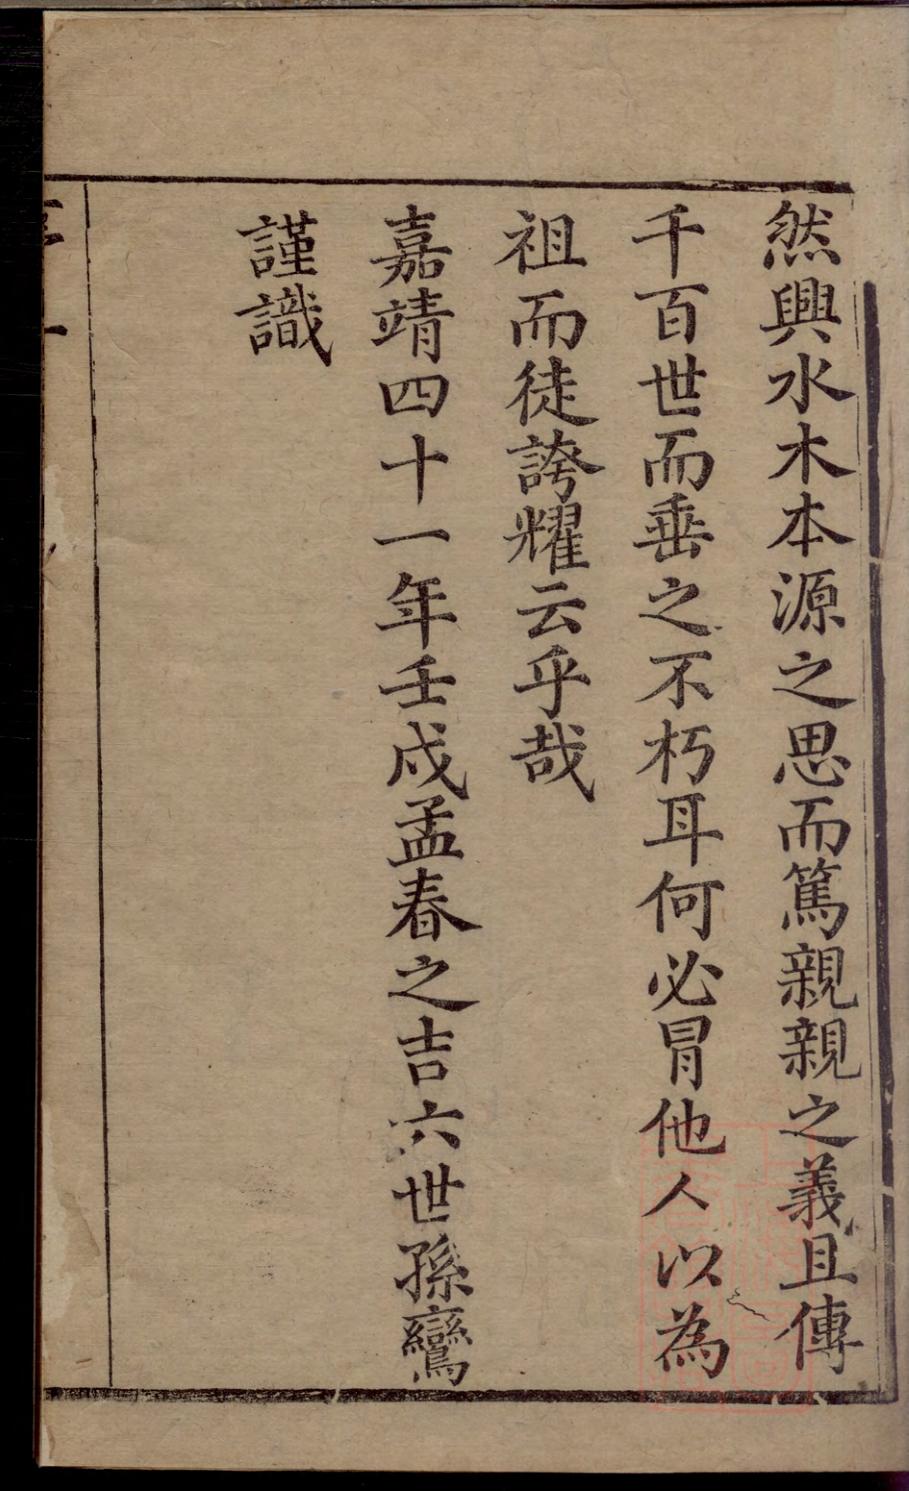 然興水木本源之思而篤親親之義且傳
千百世而垂之不朽耳何必冐他人以為
祖而徒誇耀云乎哉
嘉靖四十一年壬戌孟春之吉六世孫鸞
謹識